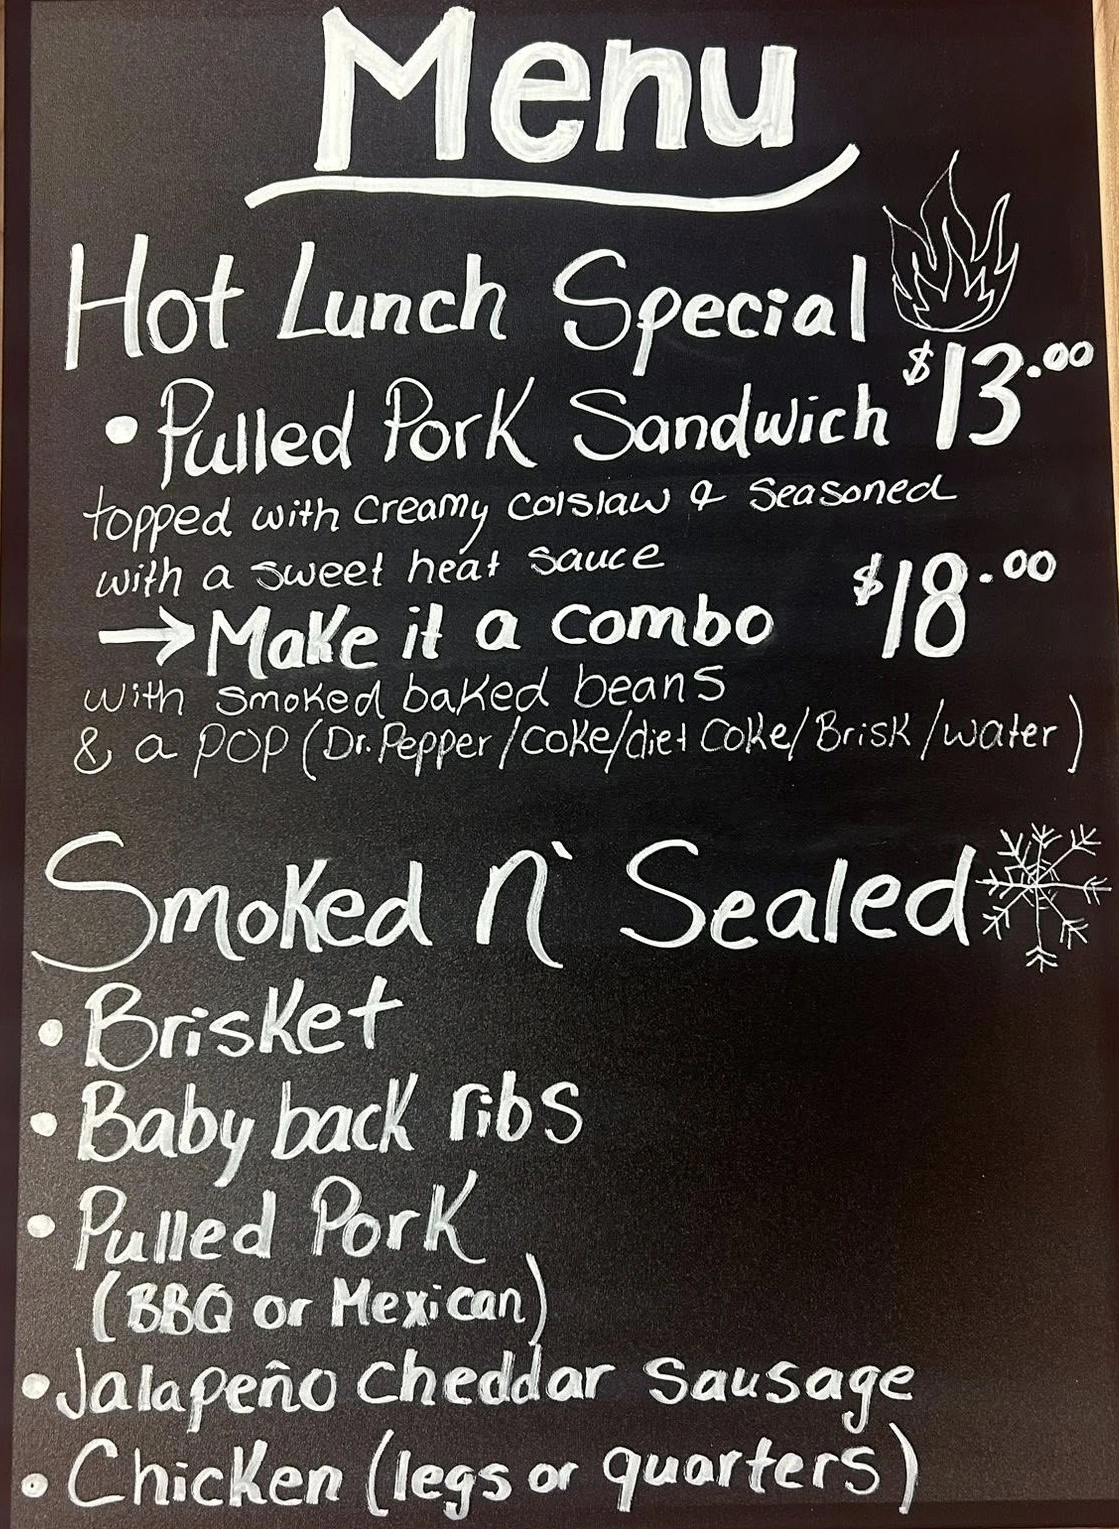 Menu
Hot Lunch Special
$13.00
• Pulled Pork Sandwich
topped with creamy colslaw & seasoned
with a sweet heat sauce
→ Make it a combo $18.00
with smoked baked beans
& a pop (Dr. Pepper/coke/diet coke/Brisk/water)
Smoked n` Sealed
• Brisket
• Baby back ribs
• Pulled Pork
(BBQ or Mexican)
• Jalapeño cheddar sausage
• Chicken (legs or quarters)